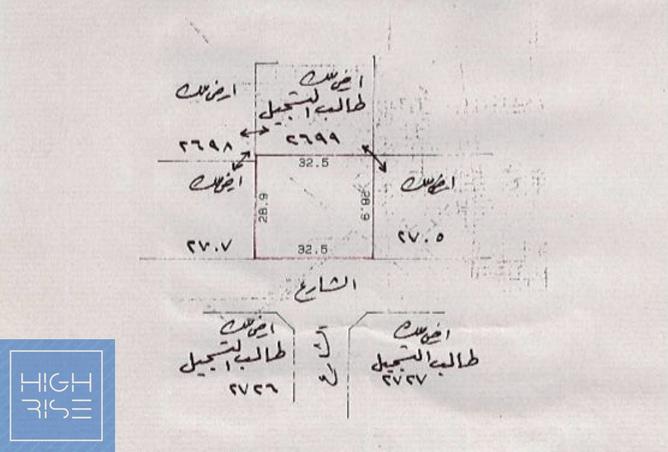 ارض ملك
طالب التسجيل
٢٦٩٩
ارض ملك
٢٦٩٨
32.5
ارض ملك
28.9
28.9
ارض ملك
٢٧٠٧
32.5
٢٧٠٥
الشارع
ارض ملك
طالب التسجيل
٢٧٢٦
الشارع
ارض ملك
طالب التسجيل
٢٧٢٧
HIGH
RISE